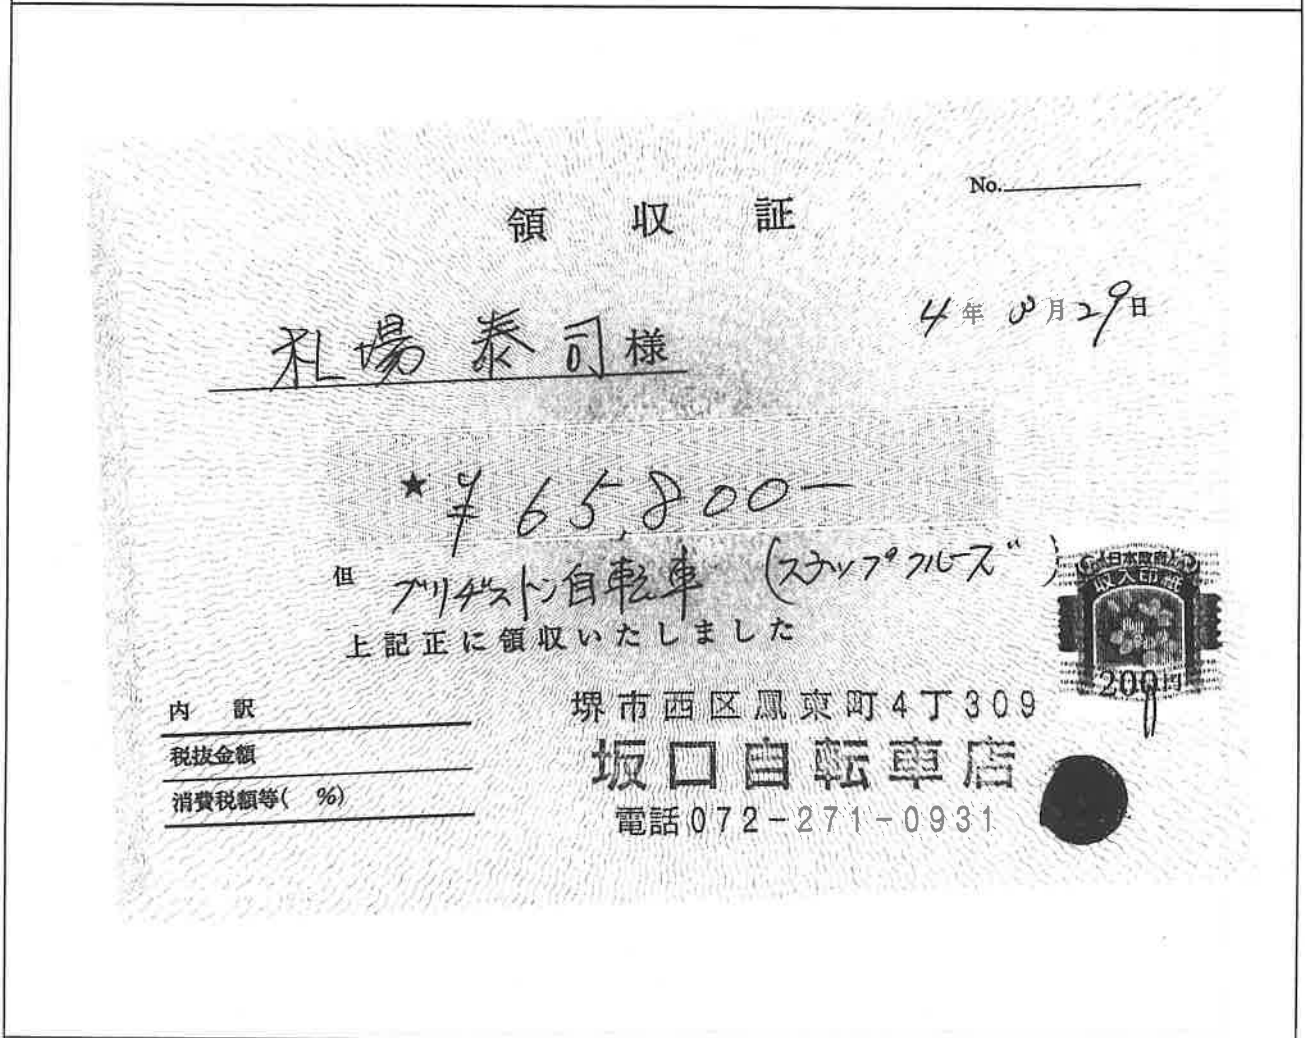 No.
領 収 証
4年 8月29日
札場 泰司 様
★ ¥65,800-
但 ブリヂストン自転車 (ステップクルーズ)
上記正に領収いたしました
日本政府
収入印紙
200円
内 訳
税抜金額
消費税額等( %)
堺市西区鳳東町4丁309
坂口自転車店
電話072-271-0931